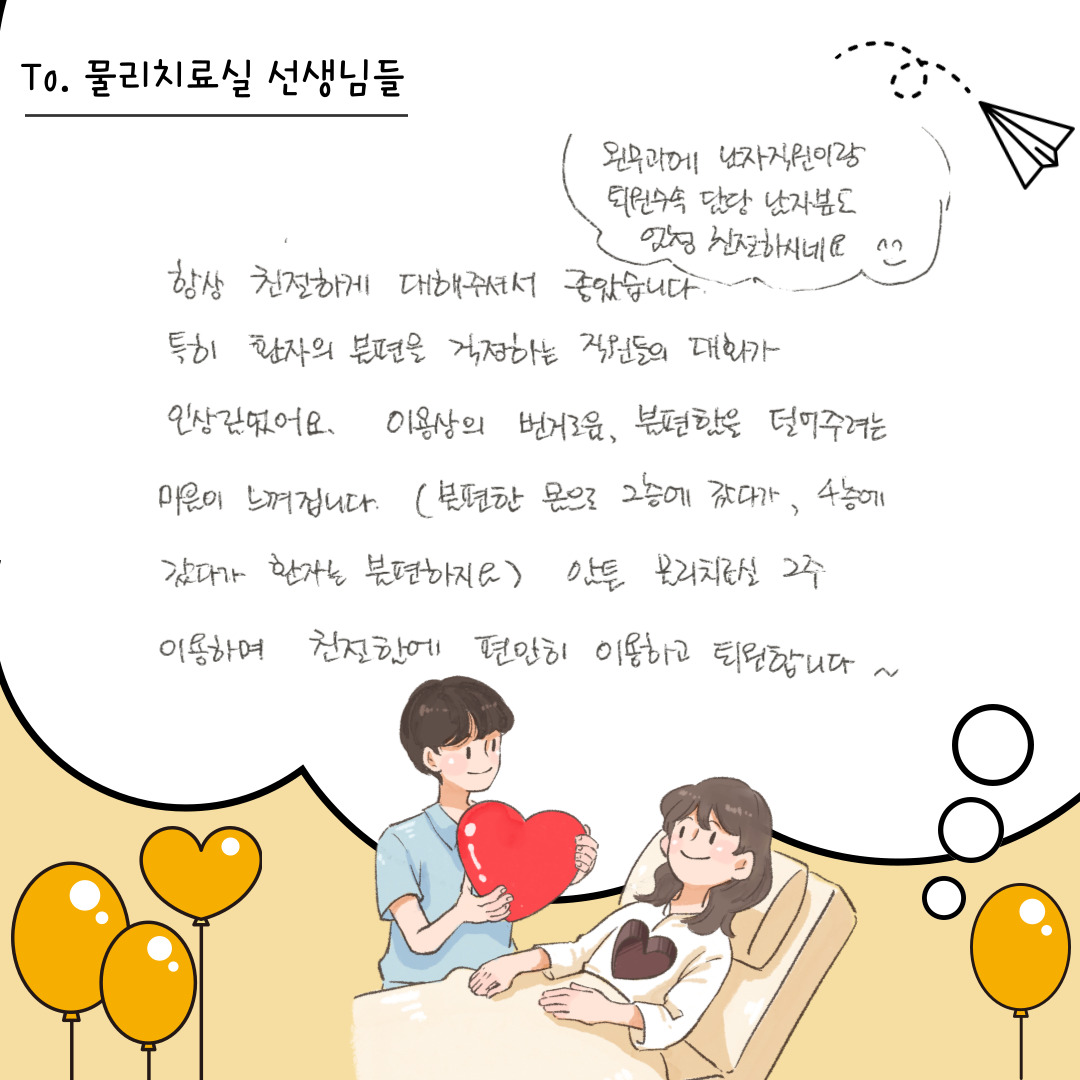 To. 물리치료실 선생님들
원무과에 남자직원이랑
퇴원수속 담당 남자분도
엄청 친절하시네요 ^^
항상 친절하게 대해주셔서 좋았습니다.
특히 환자의 불편을 걱정하는 직원들의 대화가
인상깊었어요. 이용상의 번거로움, 불편함을 덜어주려는
마음이 느껴집니다. (불편한 몸으로 2층에 갔다가, 4층에
갔다가 환자는 불편하지요) 암튼 물리치료실 2주
이용하며 친절함에 편안히 이용하고 퇴원합니다 ~